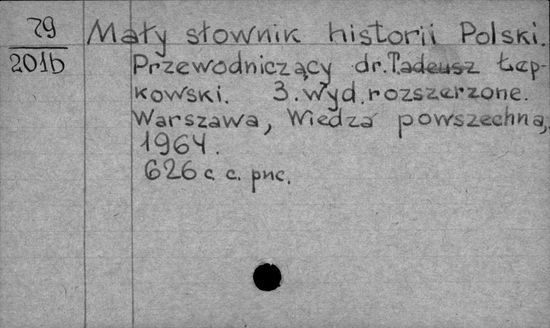 79
201b
Mały słownik historii Polski.
Przewodniczący dr. Tadeusz Łep-
kowski. 3. wyd. rozszerzone.
Warszawa, Wiedza powszechna,
1964.
626 c. с. рис.